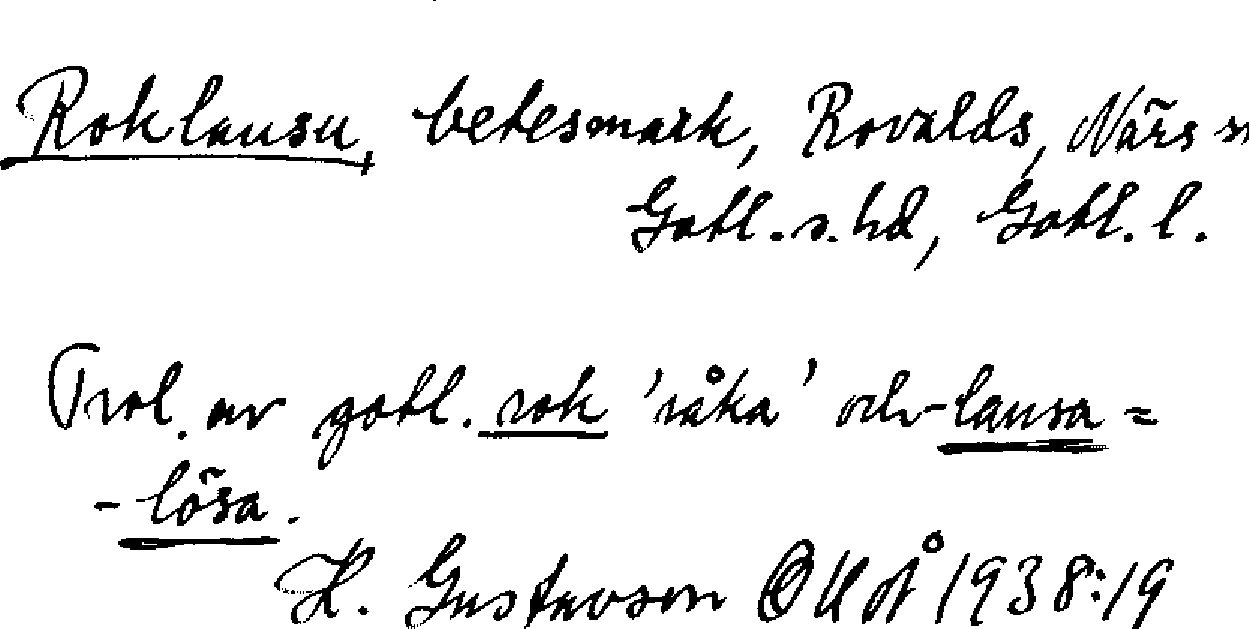 Roklausu, betesmark, Rovalds, När sn
Gotl. s. hd, Gotl. l.
Trol. av gotl. rok 'råka' och -lausa =
-lösa.
H. Gustavson 1938:19